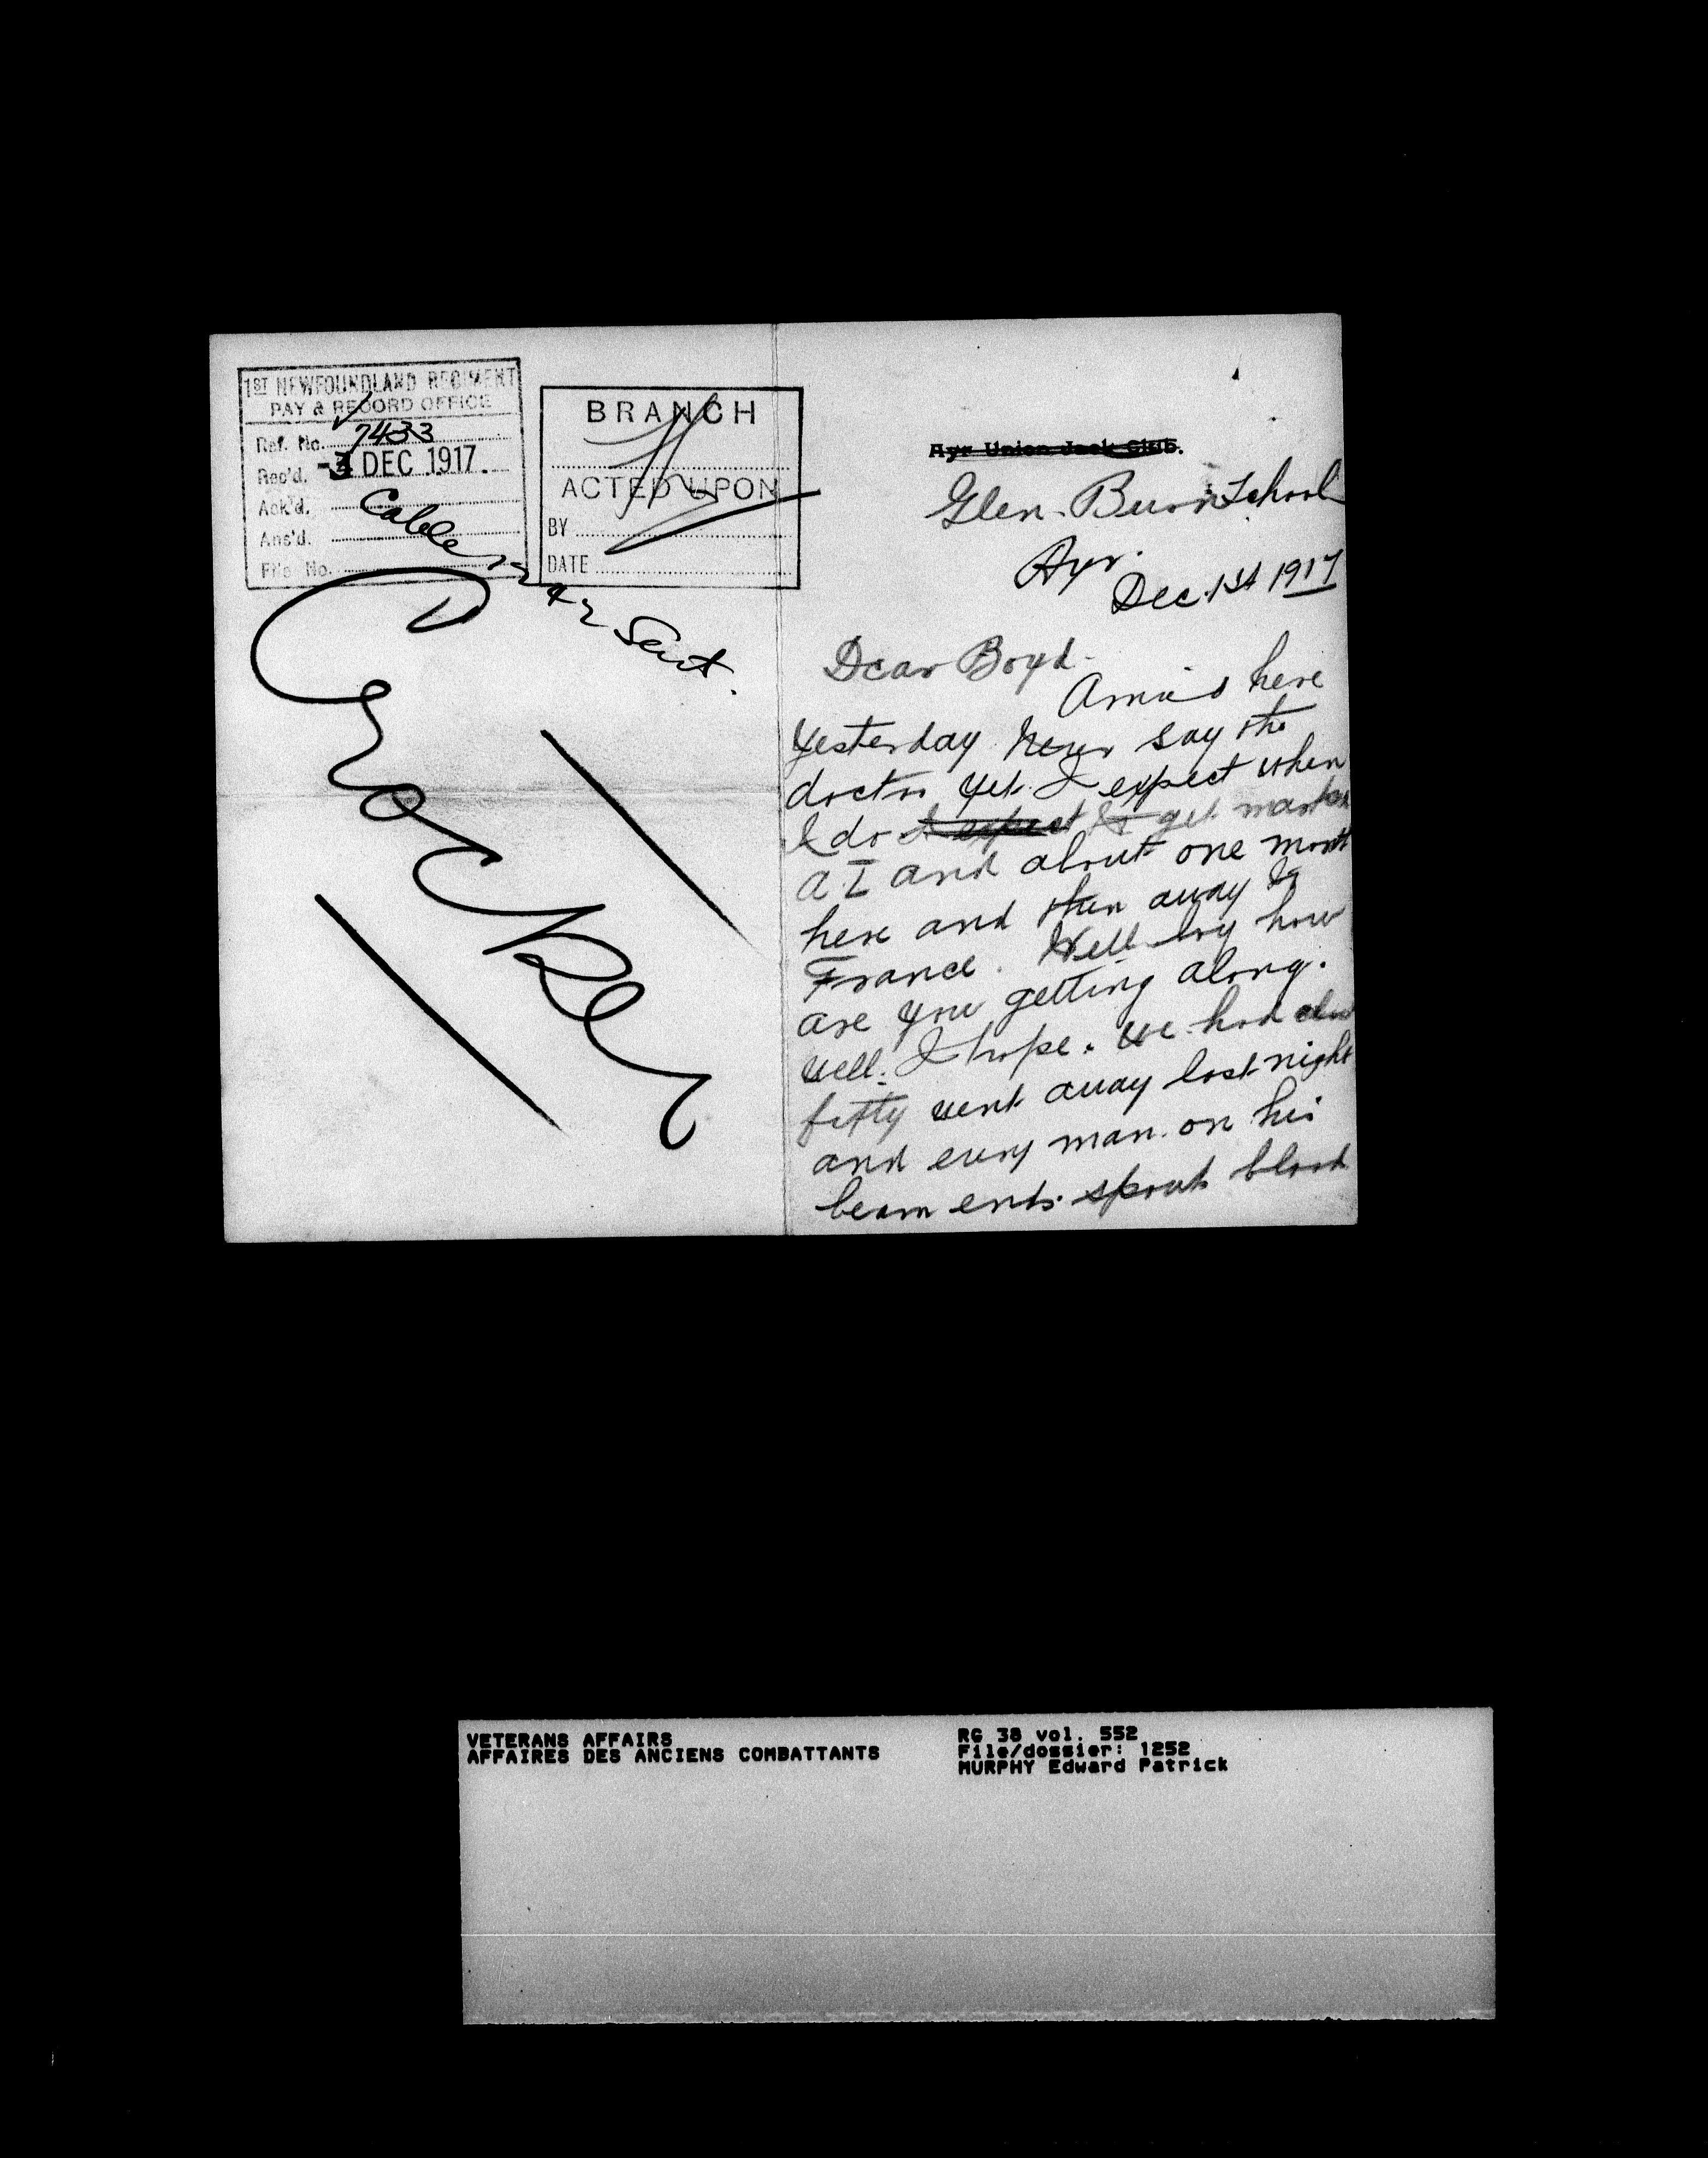 1ST NEWFOUNDLAND REGIMENT
PAY & RECORD OFFICE
Ref. No. 7433
Rec'd. -3 DEC 1917.
Ack'd.
Ans'd.
File No.
Cable
Sent.
BRANCH
ACTED UPON
BY
DATE
Crocker
Ayr Union Jack Club.
Glen-Burn School
Ayr.
Dec. 1st 1917
Dear Boyd.
Arrived here
Yesterday never say the
doctor yet. I expect when
I do I expect to get marked
A I and about one month
here and then away to
France. Well boy how
are you getting along.
well. I hope. we had
fifty went away last night
and every man. on his
beam ends. blood
VETERANS AFFAIRS
AFFAIRES DES ANCIENS COMBATTANTS
RG 38 vol. 552
File/dossier: 1252
MURPHY Edward Patrick